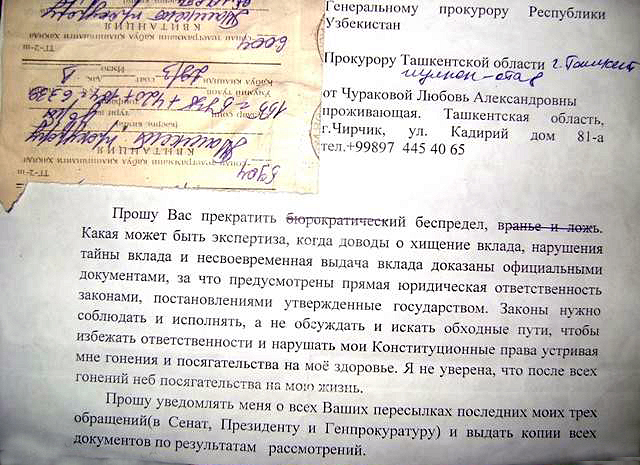 Генеральному прокурору Республики
Узбекистан
Прокурору Ташкентской области г. Ташкент
от Чураковой Любовь Александровны
проживающая. Ташкентская область,
г.Чирчик, ул. Кадирий дом 81-а
тел.+99897 445 40 65
КВИТАНЦИЯ
6004
КВИТАНЦИЯ
5904
Прошу Вас прекратить бюрократический беспредел, вранье и ложь.
Какая может быть экспертиза, когда доводы о хищение вклада, нарушения
тайны вклада и несвоевременная выдача вклада доказаны официальными
документами, за что предусмотрены прямая юридическая ответственность
законами, постановлениями утвержденные государством. Законы нужно
соблюдать и исполнять, а не обсуждать и искать обходные пути, чтобы
избежать ответственности и нарушать мои Конституционные права устривая
мне гонения и посягательства на моё здоровье. Я не уверена, что после всех
гонений неб посягательства на мою жизнь.
Прошу уведомлять меня о всех Ваших пересылках последних моих трех
обращений(в Сенат, Президенту и Генпрокуратуру) и выдать копии всех
документов по результатам рассмотрений.